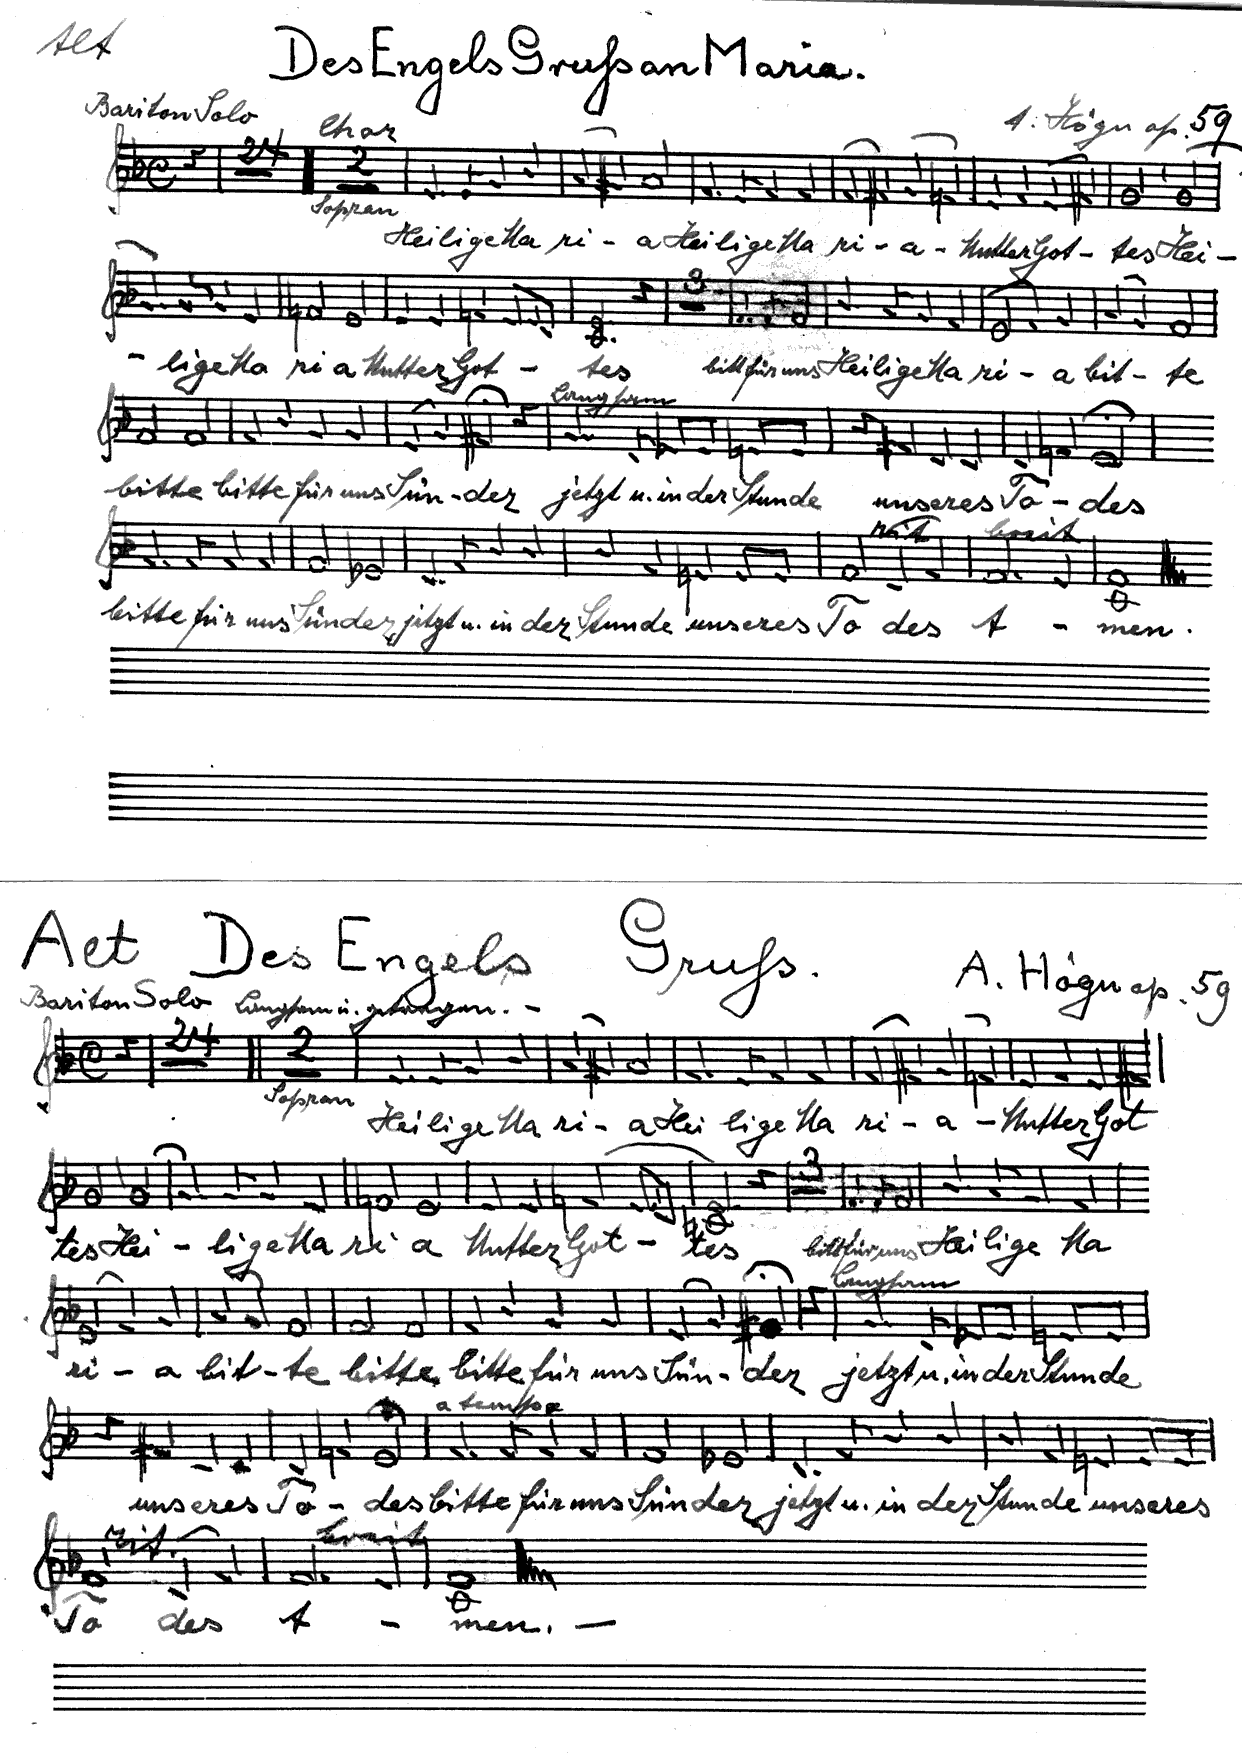 Alt
Des Engels Gruß an Maria.
Bariton Solo
Chor
A. Högn op. 59
24
2
Sopran
Heilige Ma ri - a Heilige Ma ri - a - Mutter Got - tes Hei -
3
- lige Ma ri a Mutter Got - tes bitt für uns Heilige Ma ri - a bit - te
Langsam
bitte bitte für uns Sün - der jetzt u. in der Stunde unseres To - des
rit breit
bitte für uns Sünder, jetzt u. in der Stunde unseres To des A - men.
Alt Des Engels Gruß.
A. Högn op. 59
Bariton Solo Langsam u. getragen. -
24
2
Sopran
Heilige Ma ri - a Hei lige Ma ri - a - Mutter Got
3
tes Hei - lige Ma ri a Mutter Got - tes bitt für uns Heilige Ma
Langsam
ri - a bit - te bitte, bitte für uns Sün - der jetzt u. in der Stunde
a tempo
unseres To - des bitte für uns Sünder, jetzt u. in der Stunde unseres
rit. breit
To des A - men. -